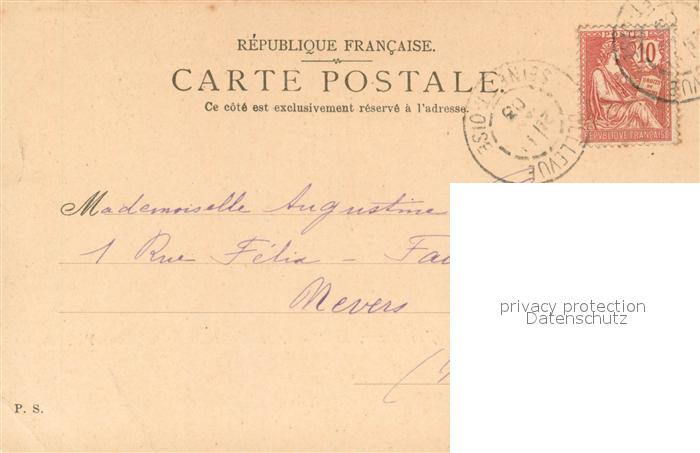 RÉPUBLIQUE FRANÇAISE.
CARTE POSTALE.
Ce côté est exclusivement réservé à l'adresse.
POSTES
10
DROITS DE
REPUBLIQUE FRANÇAISE
SEINE-ET-OISE
BELLEVUE
Mademoiselle Augustine
1 Rue Félix -
Nevers
(
privacy protection
Datenschutz
P. S.